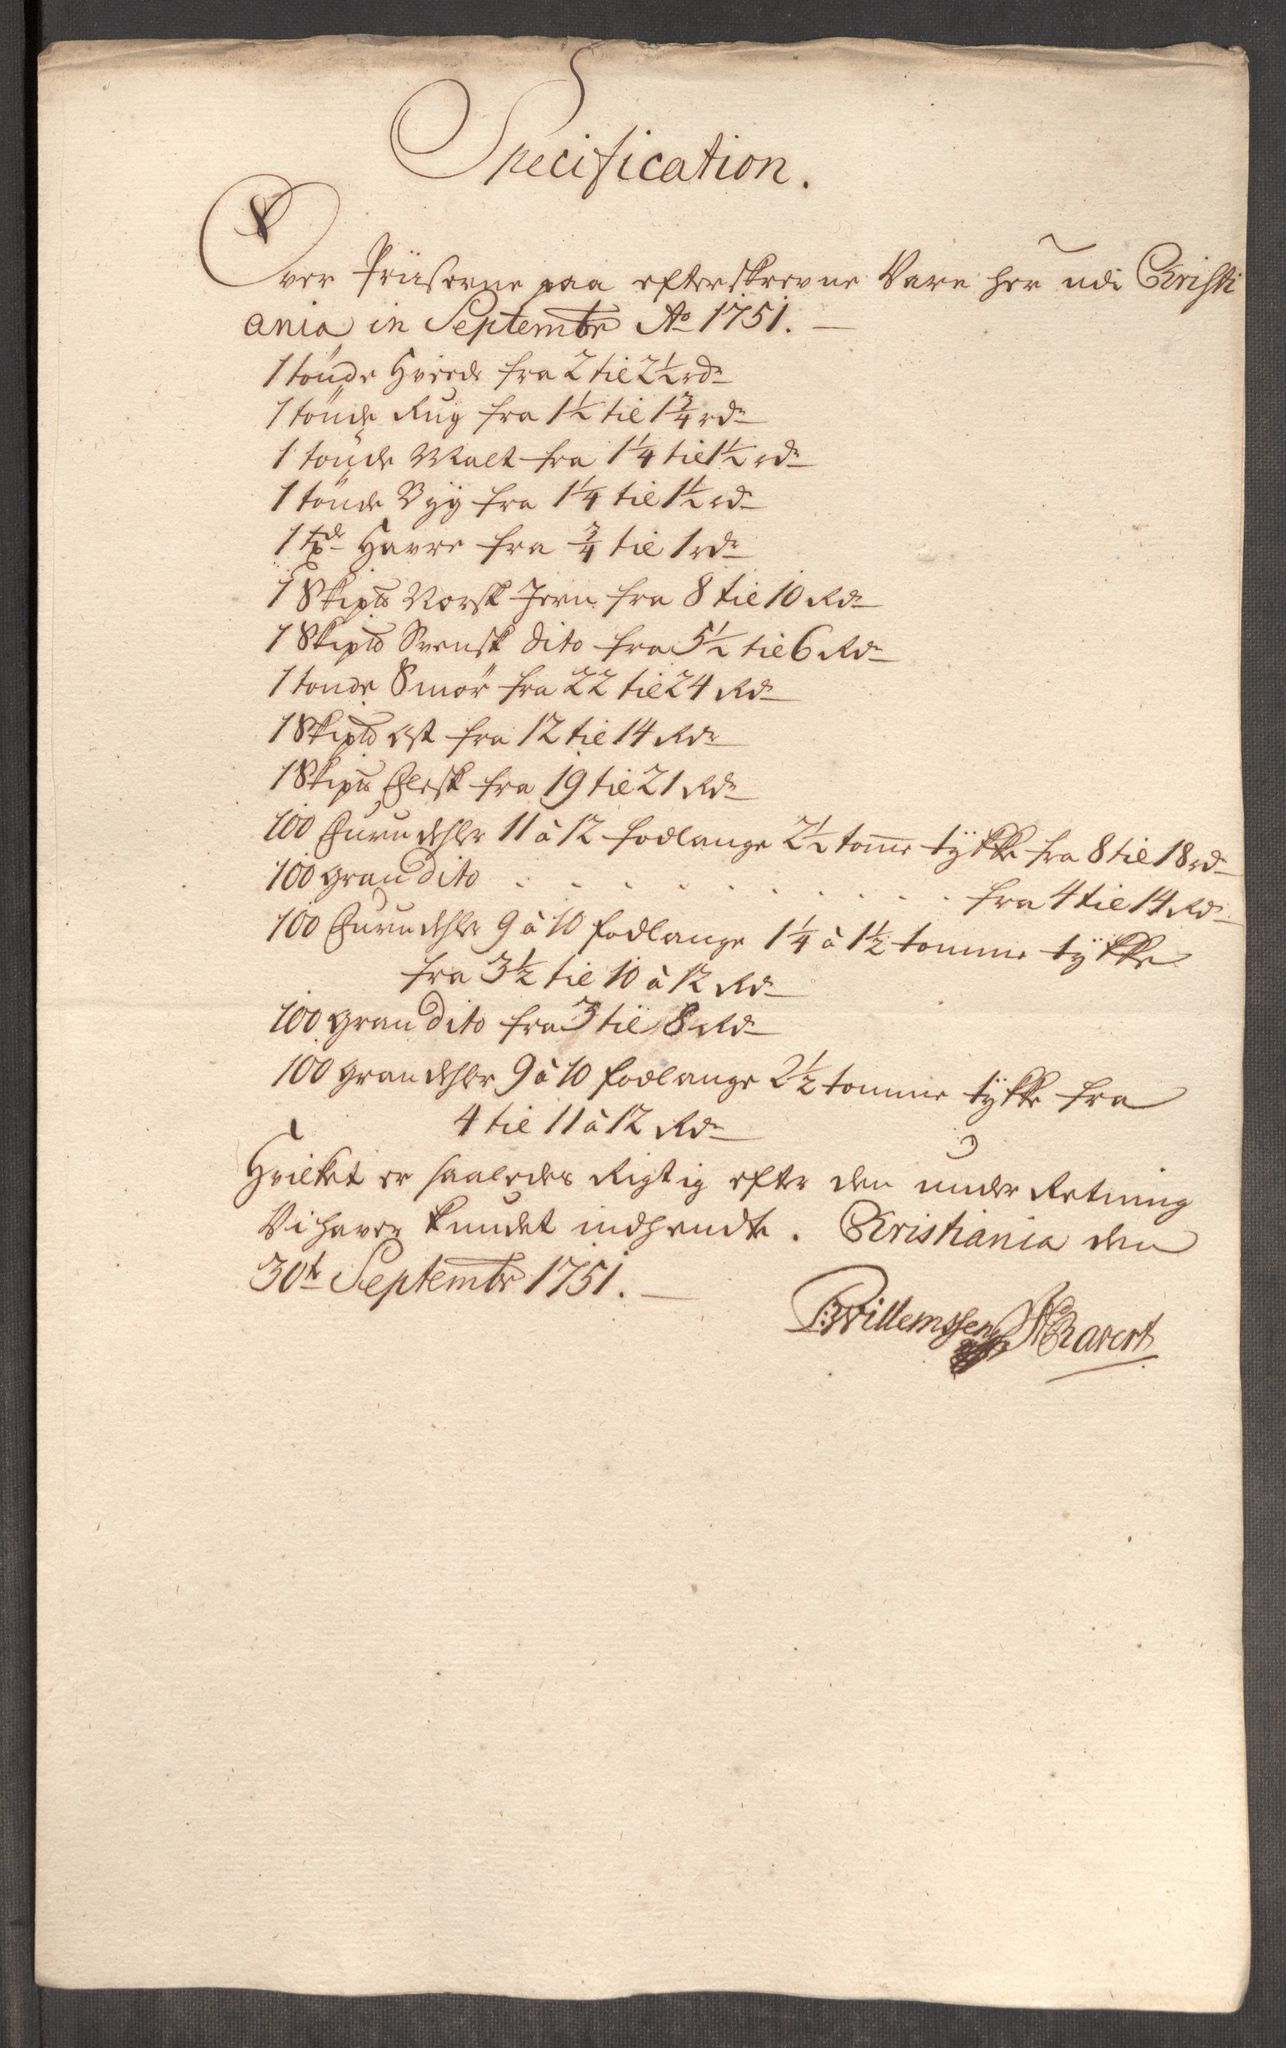 Specification.
Over Priiserne paa efterskrevne Vare her udi Christi
ania in Septembr Ao 1751. —
1 tønde Hvede fra 2 til 2½ rdr
1 tönde Rug fra 1½ til 1¾ rdr
1 tönde Malt fra 1¼ til 1½ rdr
1 tönde Byg fra 1¼ til 1½ rdr
1 tde Havre fra ¾ til 1 rdr
1 Skipd Norsk Jern fra 8 til 10 Rdr
1 Skipd Svensk dito fra 5½ til 6 Rdr
1 tonde Smör fra 22 til 24 Rdr
1 Skipd Ost fra 12 til 14 Rdr
1 Skipd Flesk fra 19 til 21 Rdr
100 Furu dehler 11 à 12 fodlange 2½ tomme tÿkke fra 8 til 18 rdr
100 gran dito . . . . . . . . . . fra 4 til 14 Rdr
100 Furu dehler 9 à 10 fodlange 1¼ à 1½ tomme tÿkke
fra 3½ til 10 à 12 Rdr
100 gran dito fra 3 til 8 Rdr
100 gran dehler 9 à 10 fodlange 2½ tomme tÿkke fra
4 til 11 à 12 Rdr
Hvilket er saaledes Rigtig efter den under Retning
Vi haver kundet indhendte. Christiania den
30t Septembr 1751. —
Willemssen Ravert